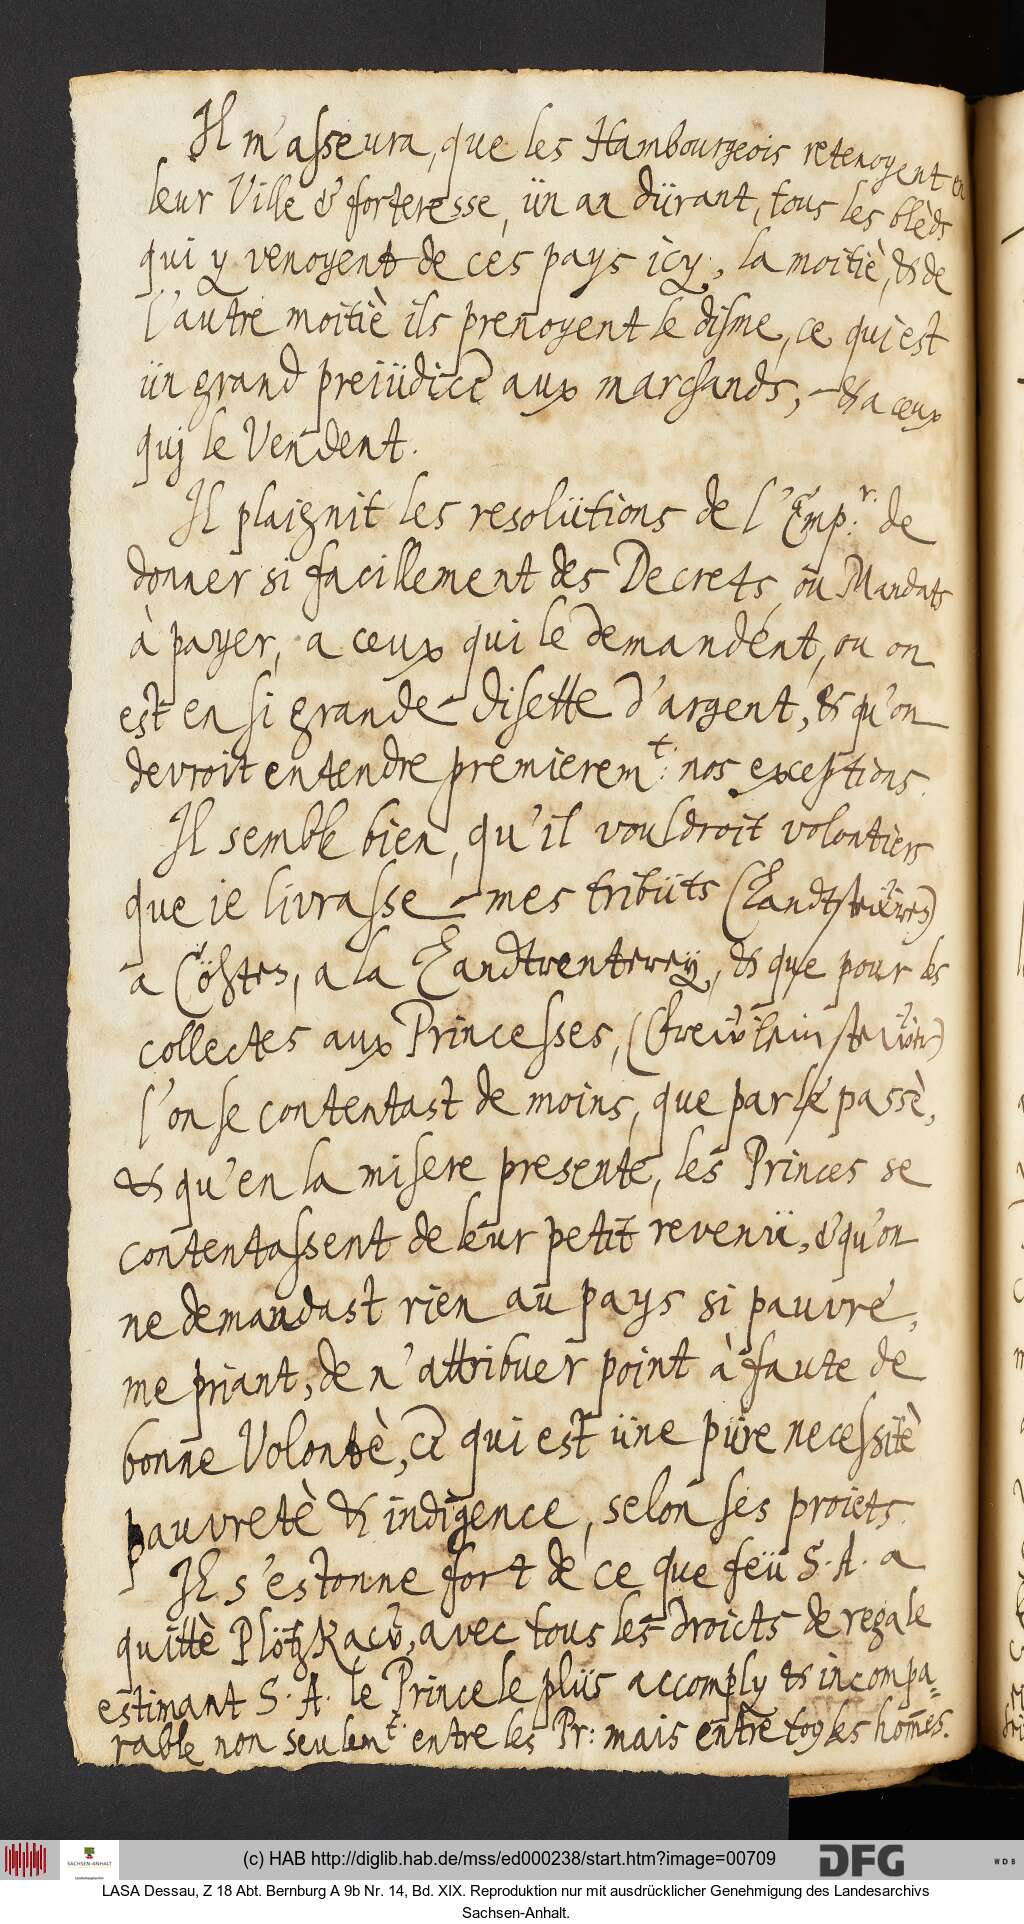 Il m'asseura, que les Hambourgeois retenoyent en
leur Ville & forteresse, ün an dürant, tous les blèds
qui y venoyent de ces pays icy, la moitiè, & de
l'autre moitiè ils prenoyent le disme, ce qui est
ün grand prejüdice aux marchands, & a ceux
quj le Vendent.
Il plaignit les resolütions de l'Emp:r. de
donner si facillement des Decrets, ou Mandats
à payer, a ceux qui le demandent, ou on
est en si grande disette d'argent, & qu'on
devroit entendre premierem:t nos exceptions.
Il semble bien, qu'il vouldroit volontiers
que je livrasse mes tribüts (Landtstewres)
a Cöhten, a la Landtrenterey, & que pour les
collectes aux Princesses, (Frewlein stewer)
l'on se contentast de moins, que par le passè,
& qu'en la misere presente, les Princes se
contentassent de leur petit revenü, & qu'on
ne demandast rien au pays si pauvre,
me priant, de n'attribuer point à faute de
bonne Volontè, ce qui est üne püre necessitè
pauvretè & indigence, selon ses projets.
Il s'estonne fort de ce que feü S. A. a
quittè Plötzkaw, avec tous les droicts de regale
estimant S. A. le Prince le plüs accomply & incompa-
rable non seulem:t entre les Pr: mais entre tous les hom̄es.
(c) HAB http://diglib.hab.de/mss/ed000238/start.htm?image=00709
SACHSEN-ANHALT
DFG
WDB
LASA Dessau, Z 18 Abt. Bernburg A 9b Nr. 14, Bd. XIX. Reproduktion nur mit ausdrücklicher Genehmigung des Landesarchivs
Sachsen-Anhalt.